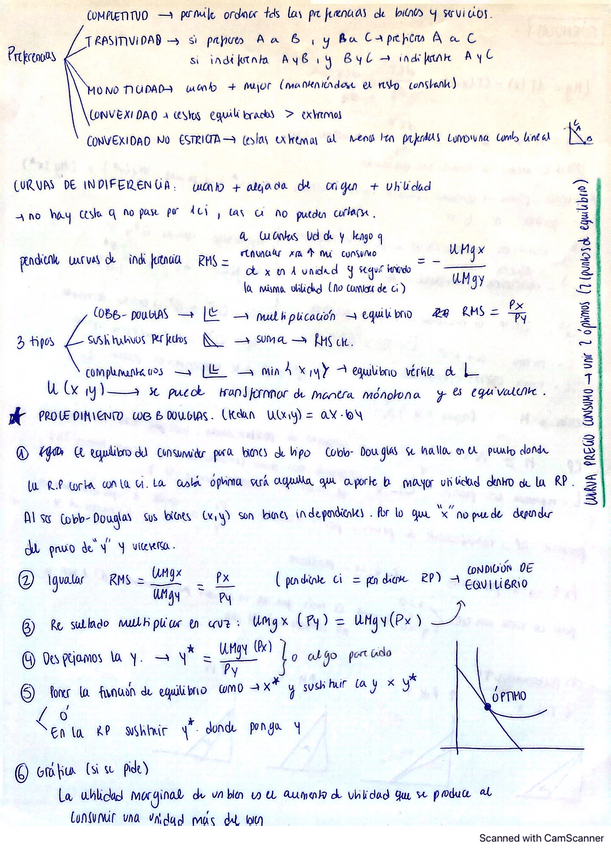 Preferencias
COMPLETITUD → permite ordenar tds las preferencias de bienes y servicios.
TRASITIVIDAD → si prefieres A a B, y B a C → prefieres A a C
si indiferente A y B, y B y C → indiferente A y C
MONOTICIDAD → cuanto + mejor (manteniéndose el resto constante)
CONVEXIDAD → cestas equilibradas > extremos
CONVEXIDAD NO ESTRICTA → cestas extremas al menos tan preferidas como una comb lineal
CURVAS DE INDIFERENCIA: cuanto + alejada de origen + utilidad
→ no hay cesta q no pase por 1 ci, las ci no pueden cortarse.
pendiente curvas de indiferencia RMS =
a cuantas ud de y tengo q
renunciar xra ↑ mi consumo
de x en 1 unidad y seguir teniendo
la misma utilidad (no cambia de ci)
= - UMgx / UMgy
3 tipos
COBB-DOUGLAS → multiplicación → equilibrio RMS = Px / Py
sustitutivos perfectos → suma → RMS cte.
complementarios → min { x, y } → equilibrio vértice de L
U (x,y) → se puede transformar de manera mónotona y es equivalente.
★ PROCEDIMIENTO COBB DOUGLAS. U(x,y) = ax·by
① El equilibro del consumidor para bienes de tipo Cobb-Douglas se halla en el punto donde
la R.P corta con la ci. La cesta óptima será aquella que aporte la mayor utilidad dentro de la RP.
Al ser Cobb-Douglas sus bienes (x,y) son bienes independientes. Por lo que "x" no puede depender
del precio de "y" y viceversa.
② Igualar RMS = UMgx / UMgy = Px / Py (pendiente ci = pendiente RP) → CONDICIÓN DE
EQUILIBRIO
③ Resultado multiplicar en cruz: UMgx (Py) = UMgy (Px)
④ Despejamos la y. → y* = UMgy (Px) / Py } o algo parecido
⑤ Poner la función de equilibrio como → x* y sustituir la y x y*
O'
En la RP sustituir y* donde ponga y
ÓPTIMO
⑥ Gráfica (si se pide)
La utilidad marginal de un bien es el aumento de utilidad que se produce al
consumir una unidad más del bien
CURVA PRECIO CONSUMO → unir 2 óptimos (2 (puntos) de equilibrio)
Scanned with CamScanner